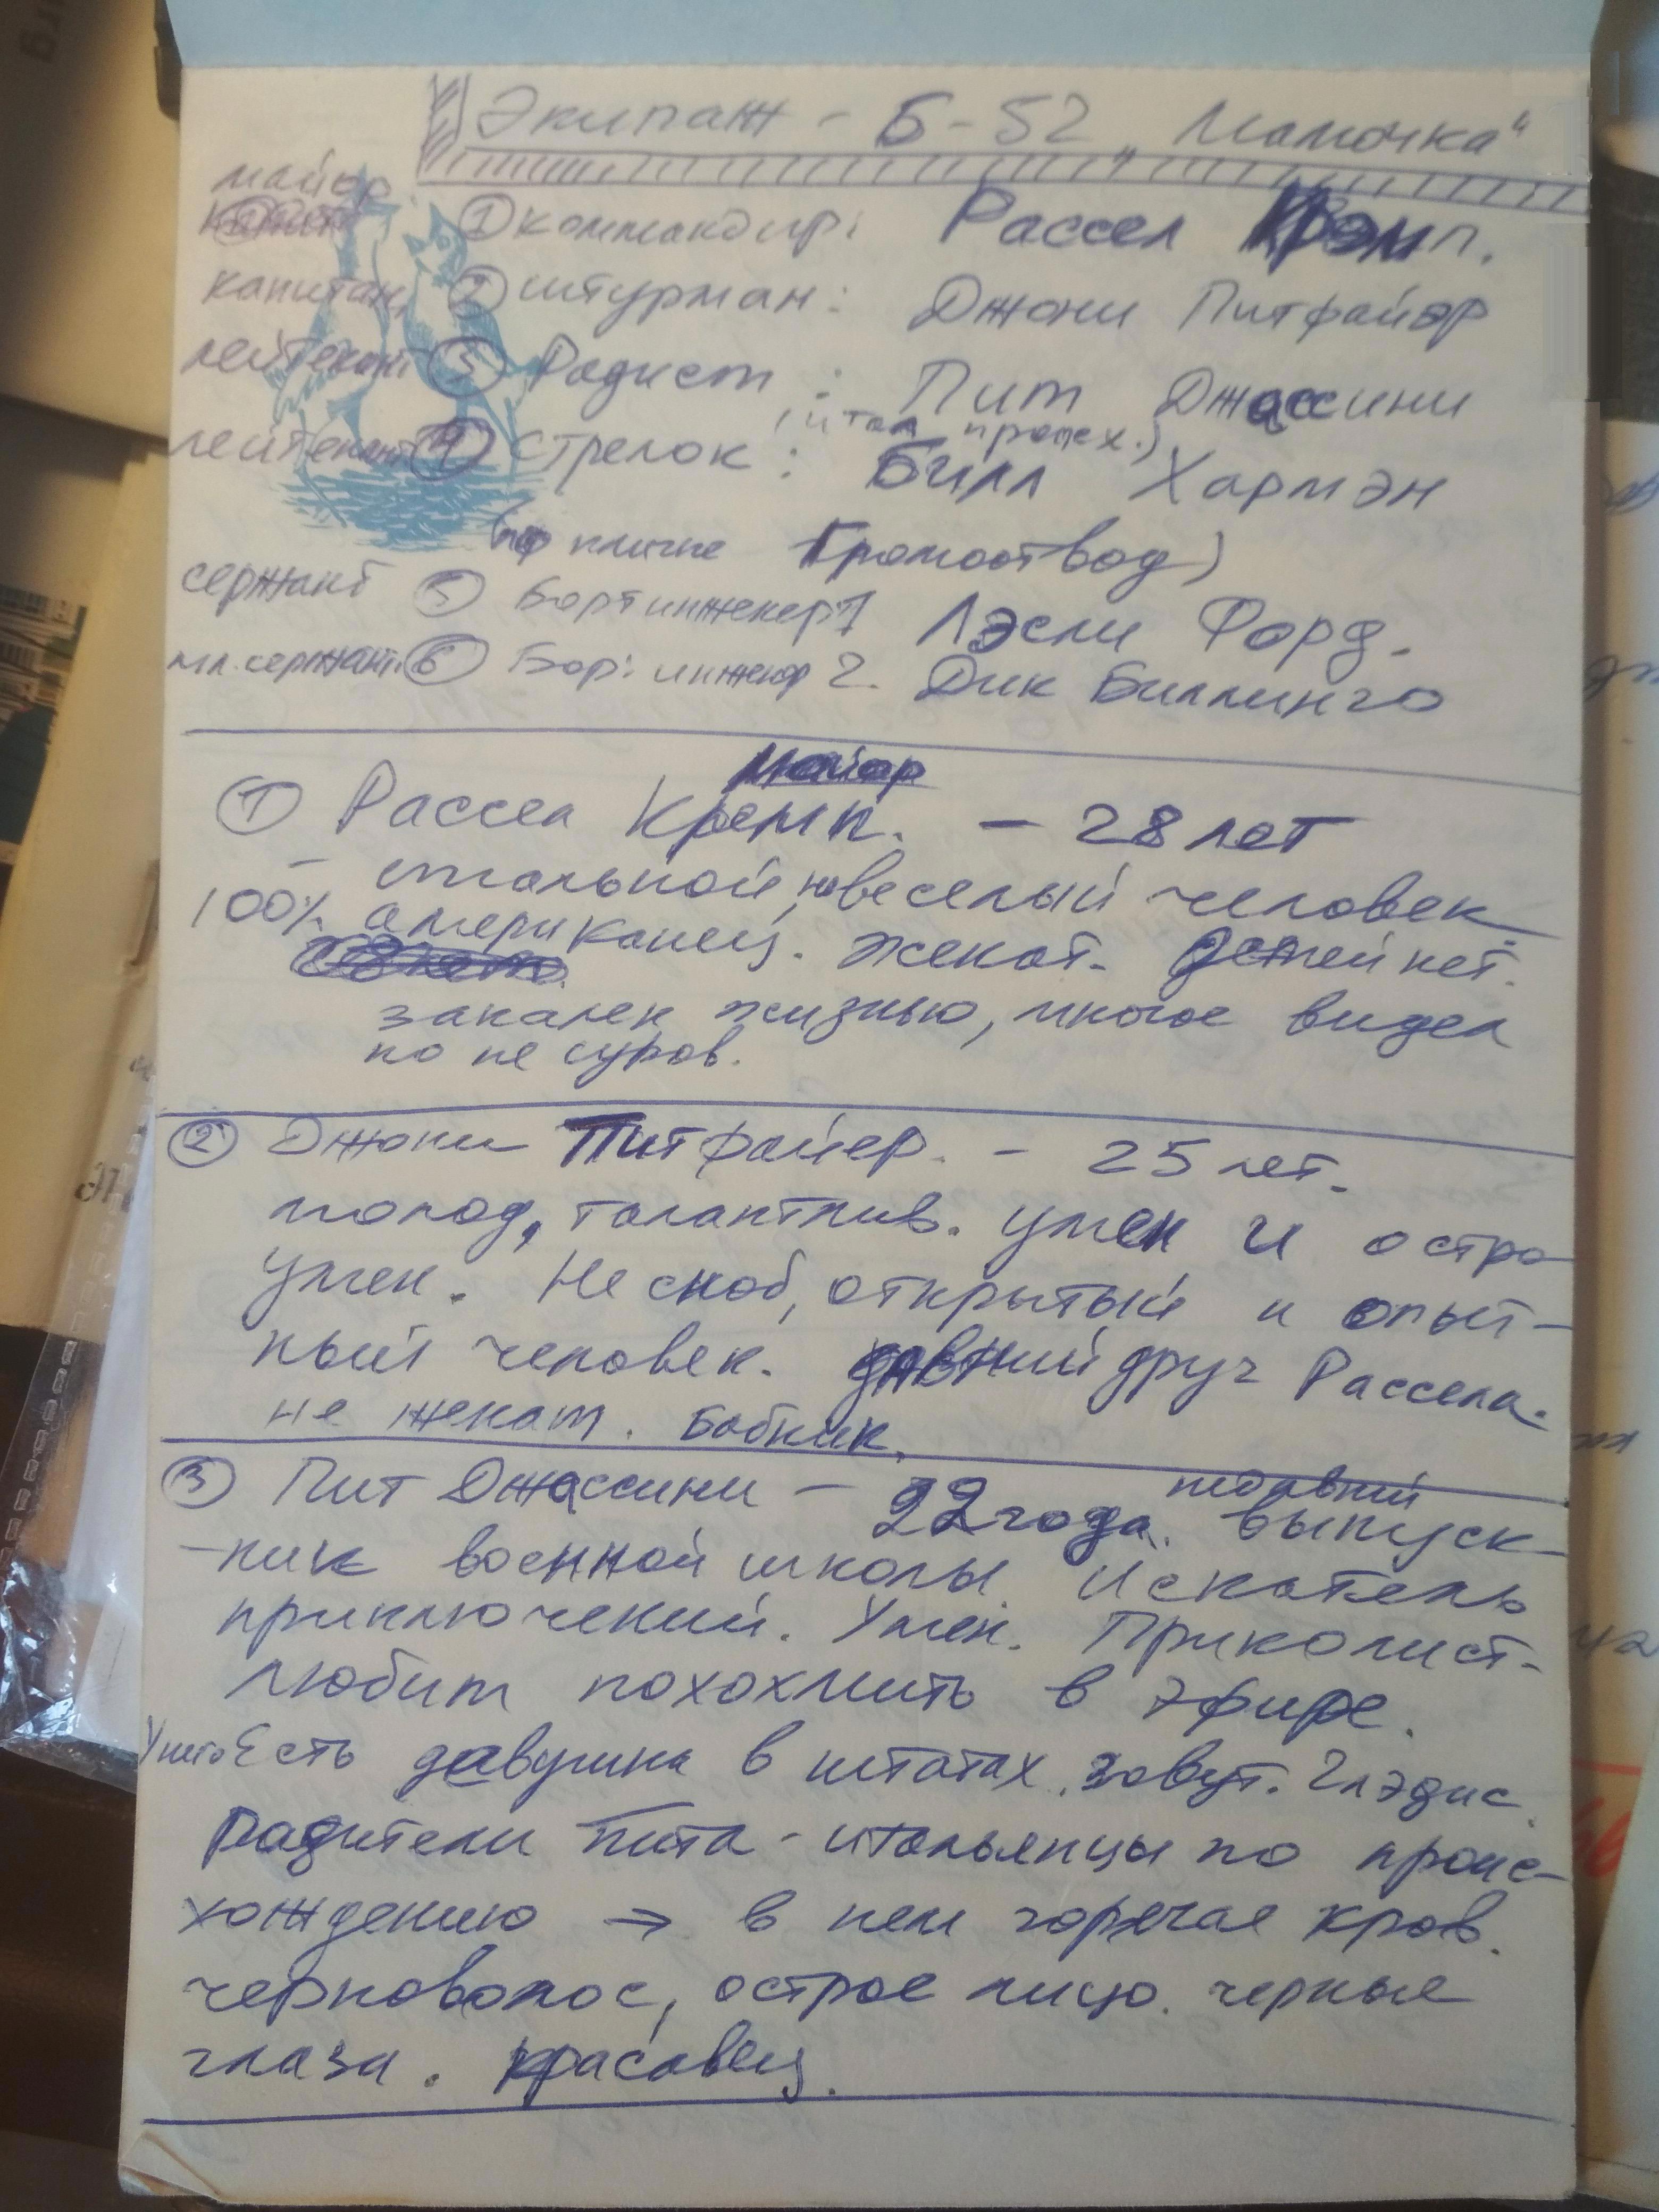 Экипаж - Б-52 „Мамочка“
майор ① коммандир: Рассел Крэмп.
капитан ② штурман: Джони Питфайэр
лейтенант ③ Радист: Пит Джассини
(итал. происх.)
лейтенант ④ Стрелок: Билл Хармэн
(по кличке Громоотвод)
сержант ⑤ Бортинженер 1 Лэсли Форд.
мл. сержант ⑥ Бор: инженер 2. Дик Биллинго
майор
① Рассел Кремп. - 28 лет
- стальной, но веселый человек
100% американец. женат. детей нет.
закален жизнью, многое видел
но не суров.
② Джони Питфайер. - 25 лет.
молод, талантлив. умен и остро-
умен. Не сноб, открытый и опыт-
ный человек. давний друг Рассела.
не женат. Бабник.
③ Пит Джассини - 22 года. недавний выпуск-
-ник военной школы. Искатель
приключений. Умен. Приколист-
любит похохмить в эфире.
У него Есть девушка в штатах. зовут. Глэдис.
Родители Пита - итальянцы по проис-
хождению → в нем горячая кров.
черноволос, острое лицо. черные
глаза. красавец.